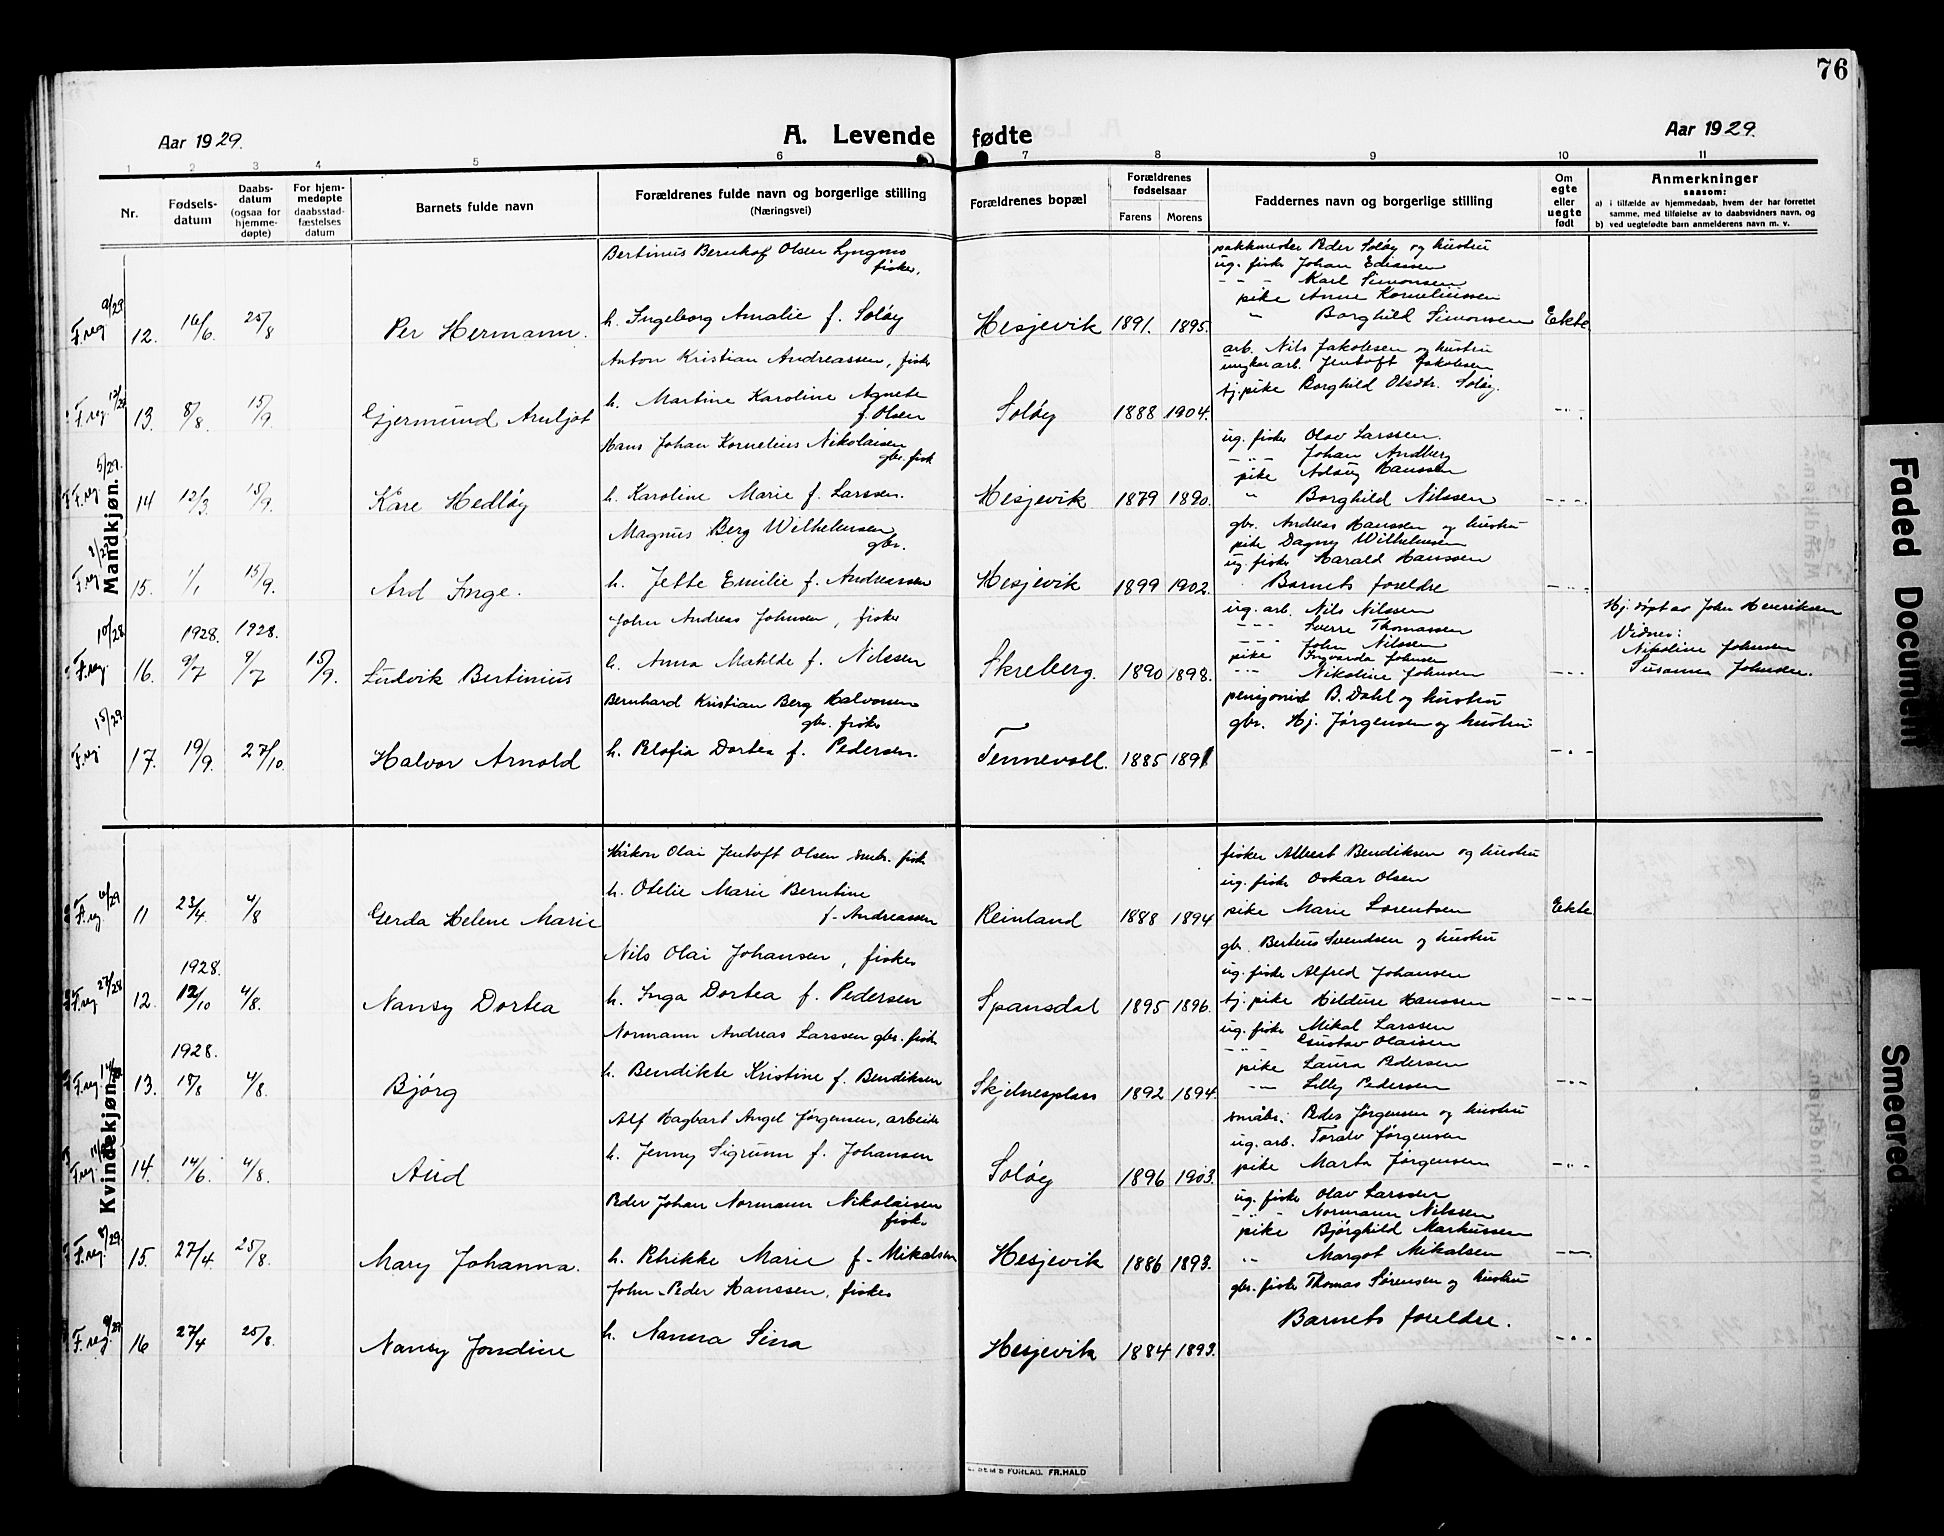 76
Aar 1929.
A. Levende fødte
Aar 1929.
1 2 3 4 5 6 7 8 9 10 11
Nr.
Fødsels-
datum
Daabs-
datum
(ogsaa for
hjemme-
døpte)
For hjem-
medøpte
daabsstad-
fæstelses
datum
Barnets fulde navn
Forældrenes fulde navn og borgerlige stilling
(Næringsvei)
Forældrenes bopæl
Forældrenes
fødselsaar
Farens Morens
Faddernes navn og borgerlige stilling
Om
egte
eller
uegte
født
Anmerkninger
saasom:
a) i tilfælde av hjemmedaab, hvem der har forrettet
samme, med tilføielse av to daabsvidners navn, og
b) ved uegtefødt barn anmelderens navn m. v.
Mandkjøn.
F.reg 9/29
12. 16/6. 25/8
Per Hermann.
Bertinus Bernhof Olsen Lyngmo
fisker.
h. Ingeborg Amalie f. Soløy
Hesjevik 1891. 1895.
Peder Soløy og hustru
ug. fisker Johan Ediassen
- - - Karl Simonsen
pike Anne Korneliussen
" Borghild Simonsen
Ekte
F.reg 12/29
13. 8/8. 15/9.
Gjermund Arnljot
Anton Kristian Andreassen, fisker
h. Martine Karoline Agnete
f. Olsen
Soløy 1888 1904.
arb. Nils Jakobsen og hustru
ungkar arb. Jentoft Jakobsen
tj.pike Borghild Olsdtr. Soløy.
-"-
F.reg. 5/29.
14 12/3. 15/9.
Kåre Hedløy
Hans Johan Kornelius Nikolaisen
gbr. fisk
h. Karoline Marie f. Larssen.
Hesjevik 1879 1890.
ug. fisker Olav Larssen.
- " - Johan Andberg
pike Aslaug Hanssen
" Borghild Nilssen
-"-
F.reg 2/29
15. 1/1 15/9.
Ard Inge.
Magnus Berg Wilhelmsen
gbr.
h. Jette Emilie f. Andreassen
Hesjevik 1899 1902.
gbr. Andreas Hanssen og hustru
pike Dagny Wilhelmsen
ug. fisker Harald Hanssen
Barnets foreldre
-"-
F.reg 10/28.
16. 1928. 9/7 1928. 9/7 15/9.
Ludvik Bertinius
John Andreas Johnsen, fisker
h. Anna Matilde f. Nilssen
Skreberg. 1890 1898.
ug. arb. Nils Nilssen
- - - Sverre Thomassen
- - - John Nilssen
pike Ingvarda Johnsen
- " - Nikoline Johnsen
-"-
Hj. døpt av John Henriksen
Vidner:
Nikoline Johnsen
Susanne Johnsen.
F.reg 15/29.
17. 19/9. 27/10.
Halvor Arnold
Bernhard Kristian Berg Halvorsen
gbr. fisker
h. Olofia Dortea f. Pedersen.
Tennevoll. 1885 1891
pensjonist B. Dahl og hustru
gbr. Hj. Jørgensen og hustru
-"-
Kvindekjøn.
F.reg 10/29
11 23/4. 4/8
Gerda Helene Marie
Håkon Olai Jentoft Olsen småbr. fisk
h. Otelie Marie Berntine
f. Andreassen
Reinland 1888 1894
fisker Albert Bendiksen og hustru
ug. fisk Oskar Olsen
pike Marie Lorentsen
Ekte
F.reg 27/28.
12. 1928. 12/10 4/8.
Nansy Dortea
Nils Olai Johansen, fisker
h. Inga Dortea f. Pedersen
Spansdal 1895 1896.
gbr. Berteus Svendsen og hustru
ug. fisker Alfred Johansen
tj. pike Hildine Hanssen
-"-
F.reg.
13. 1928. 15/8 4/8.
Bjørg
Normann Andreas Larssen gbr. fisk
h. Bendikte Kristine f. Bendiksen
Skjelnesplass 1892 1894.
ug. fisker Mikal Larssen
- " - Gustav Olaisen
pike Laura Pedersen
-"- Lilly Pedersen
-"-
F.reg
14. 14/6 4/8.
Aud
Alf Hagbart Angel Jørgensen, arbeider
h. Jenny Sigrunn f. Johansen
Soløy 1896 1903.
småbr. Peder Jørgensen og hustru
ug. arb. Toralv Jørgensen
pike Marta Jørgensen
-"-
F.reg. 8/29.
15. 27/4. 25/8.
Mary Johanna.
Peder Johan Normann Nikolaisen
fisker
h. Rikke Marie f. Mikalsen
Hesjevik 1886 1893.
ug. fisker Olav Larssen
- " - Normann Nilssen
pike Bjørghild Markussen
" Margot Mikalsen
-"-
F.reg. 9/29
16 27/4 25/8.
Nansy Jondine
John Peder Hanssen, fisker
h. Nanna Sina
Hesjevik 1884 1893.
gbr. fisker Thomas Sørensen og hustru
Barnets foreldre.
-"-
SEM'S FORLAG. FR.HALD
Faded Document
Smeared